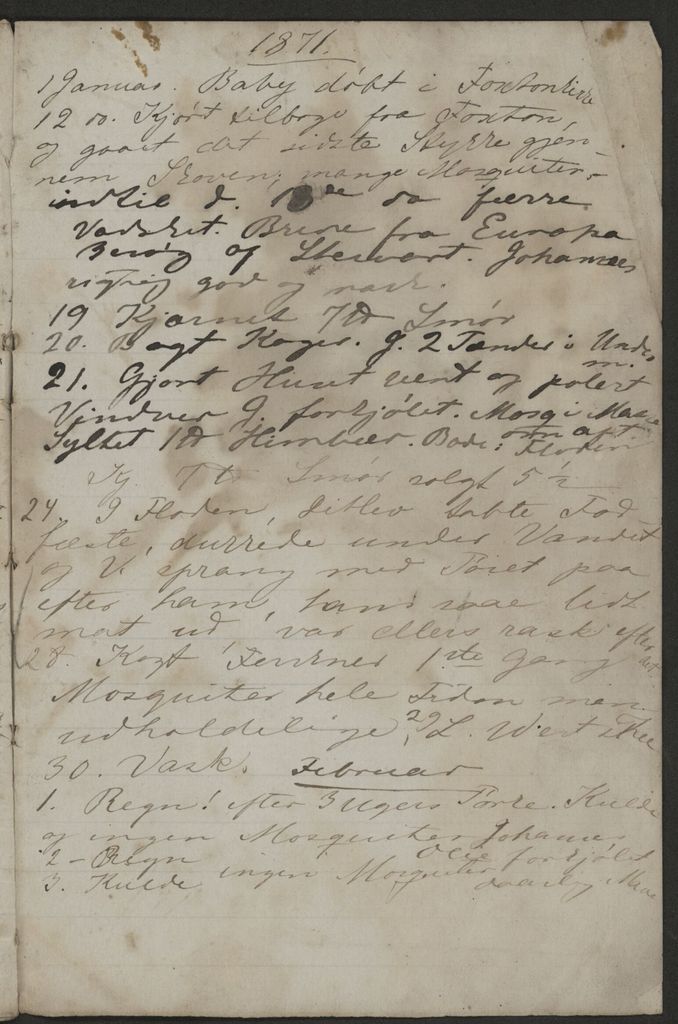 1871.
1 Januar. Baby døbt i Foxton
12 Kjørt tilbage fra Foxton,
og gaaet det sidste Stykke gjen-
nem Skoven; mange Mosquiter,
indtil d. 13de da færre
Vadsket. Breve fra Europa
Besøg af Stewart. Johannes
rigtig god og rask.
19 Kjærnet 7 Smør
20. Bagt Kager. J. 2 Tænder i Under
m.
21. Gjort Huset rent og poleret
Vinduer J. forkjølet. Mosq i Mas
Syltet 1 Himbær. Bade i Floden
Kj. 7 Smør solgt 5 1/2
24. I Floden Ditlev tabte Fod-
fæste, under Vandet
og V. sprang med Tøiet paa
efter ham, han saae lidt
mat ud, var ellers rask efter det.
28. Kogt 1ste Gang
Mosquiter hele Tiden men
udholdelige, 29 L. West Thee
30. Vask. Februar
1. Regn! efter 3 Ugers Tørke. Kulde
og ingen Mosquiter Johannes
2 - Regn forkjølet
3. Kulde ingen Mosquiter daarlig Mave